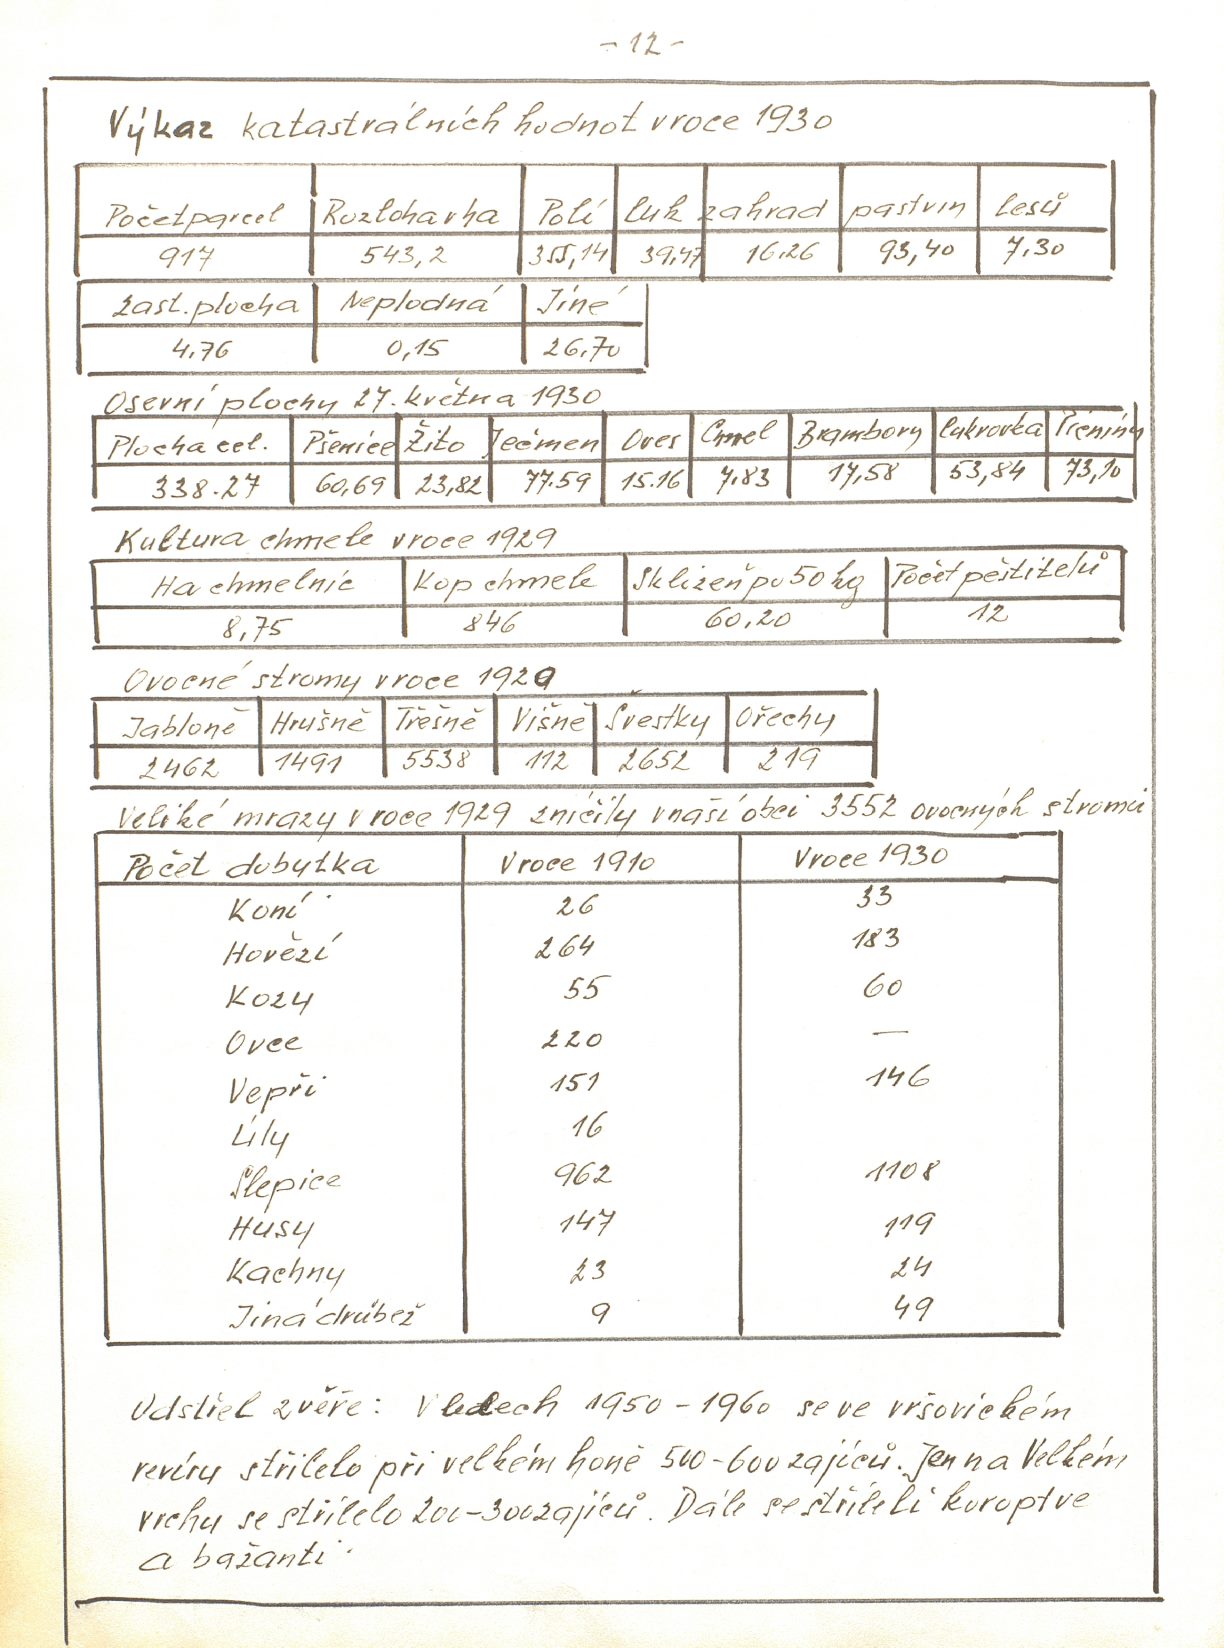 - 12 -
Výkaz katastrálních hodnot v roce 1930
Početparcel Rozloha vha Polí luk zahrad pastvin lesů
917 543,2 355,14 39,47 16.26 93,40 7.30
zast. plocha Neplodná Jiné
4.76 0,15 26,70
Osevní plochy 27. května 1930
Plocha cel. Pšenice Žito Ječmen Oves Chmel Brambory Cukrovka Pícniny
338.27 60,69 23,82 77.59 15.16 7.83 17,58 53,84 73,10
Kultura chmele v roce 1929
Ha chmelnic Kop chmele Sklizeň po 50 kg Počet pěstitelů
8,75 846 60,20 12
Ovocné stromy v roce 1929
Jabloně Hrušně Třešně Višně Švestky Ořechy
2462 1491 5538 112 2652 219
Veliké mrazy v roce 1929 zničily v naší obci 3552 ovocných stromů
Počet dobytka V roce 1910 V roce 1930
Koní 26 33
Hovězí 264 183
Kozy 55 60
Ovce 220 —
Vepři 151 146
Úly 16
Slepice 962 1108
Husy 147 119
Kachny 23 24
Jiná drůbež 9 49
Odstřel zvěře: V letech 1950 - 1960 se ve vršovickém
revíru střílelo při velkém honě 500-600 zajíců. Jen na Velkém
vrchu se střílelo 200-300 zajíců. Dále se stříleli koroptve
a bažanti.